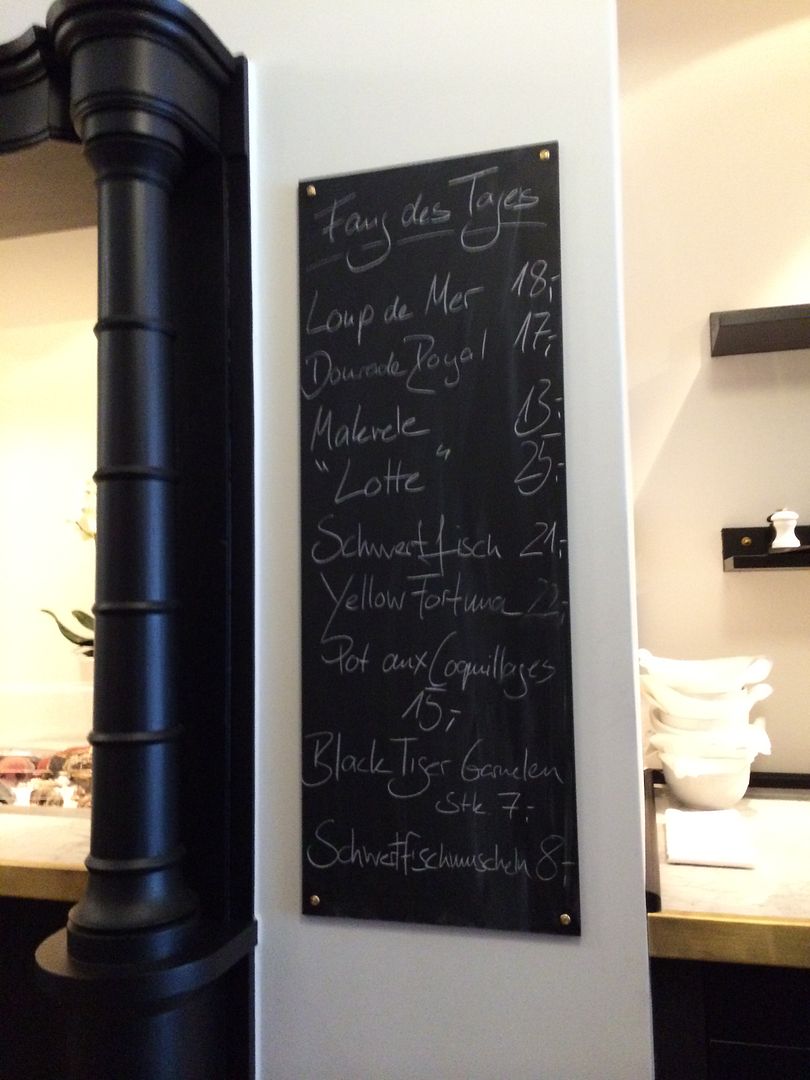 Fang des Tages
Loup de Mer 18,-
Dourade Royal 17,-
Makrele 13,-
"Lotte" 25,-
Schwertfisch 21,-
Yellow Fortuna 22,-
Pot aux Coquillages
15,-
Black Tiger Garnelen
Stk 7,-
Schwertfischmuscheln 8,-